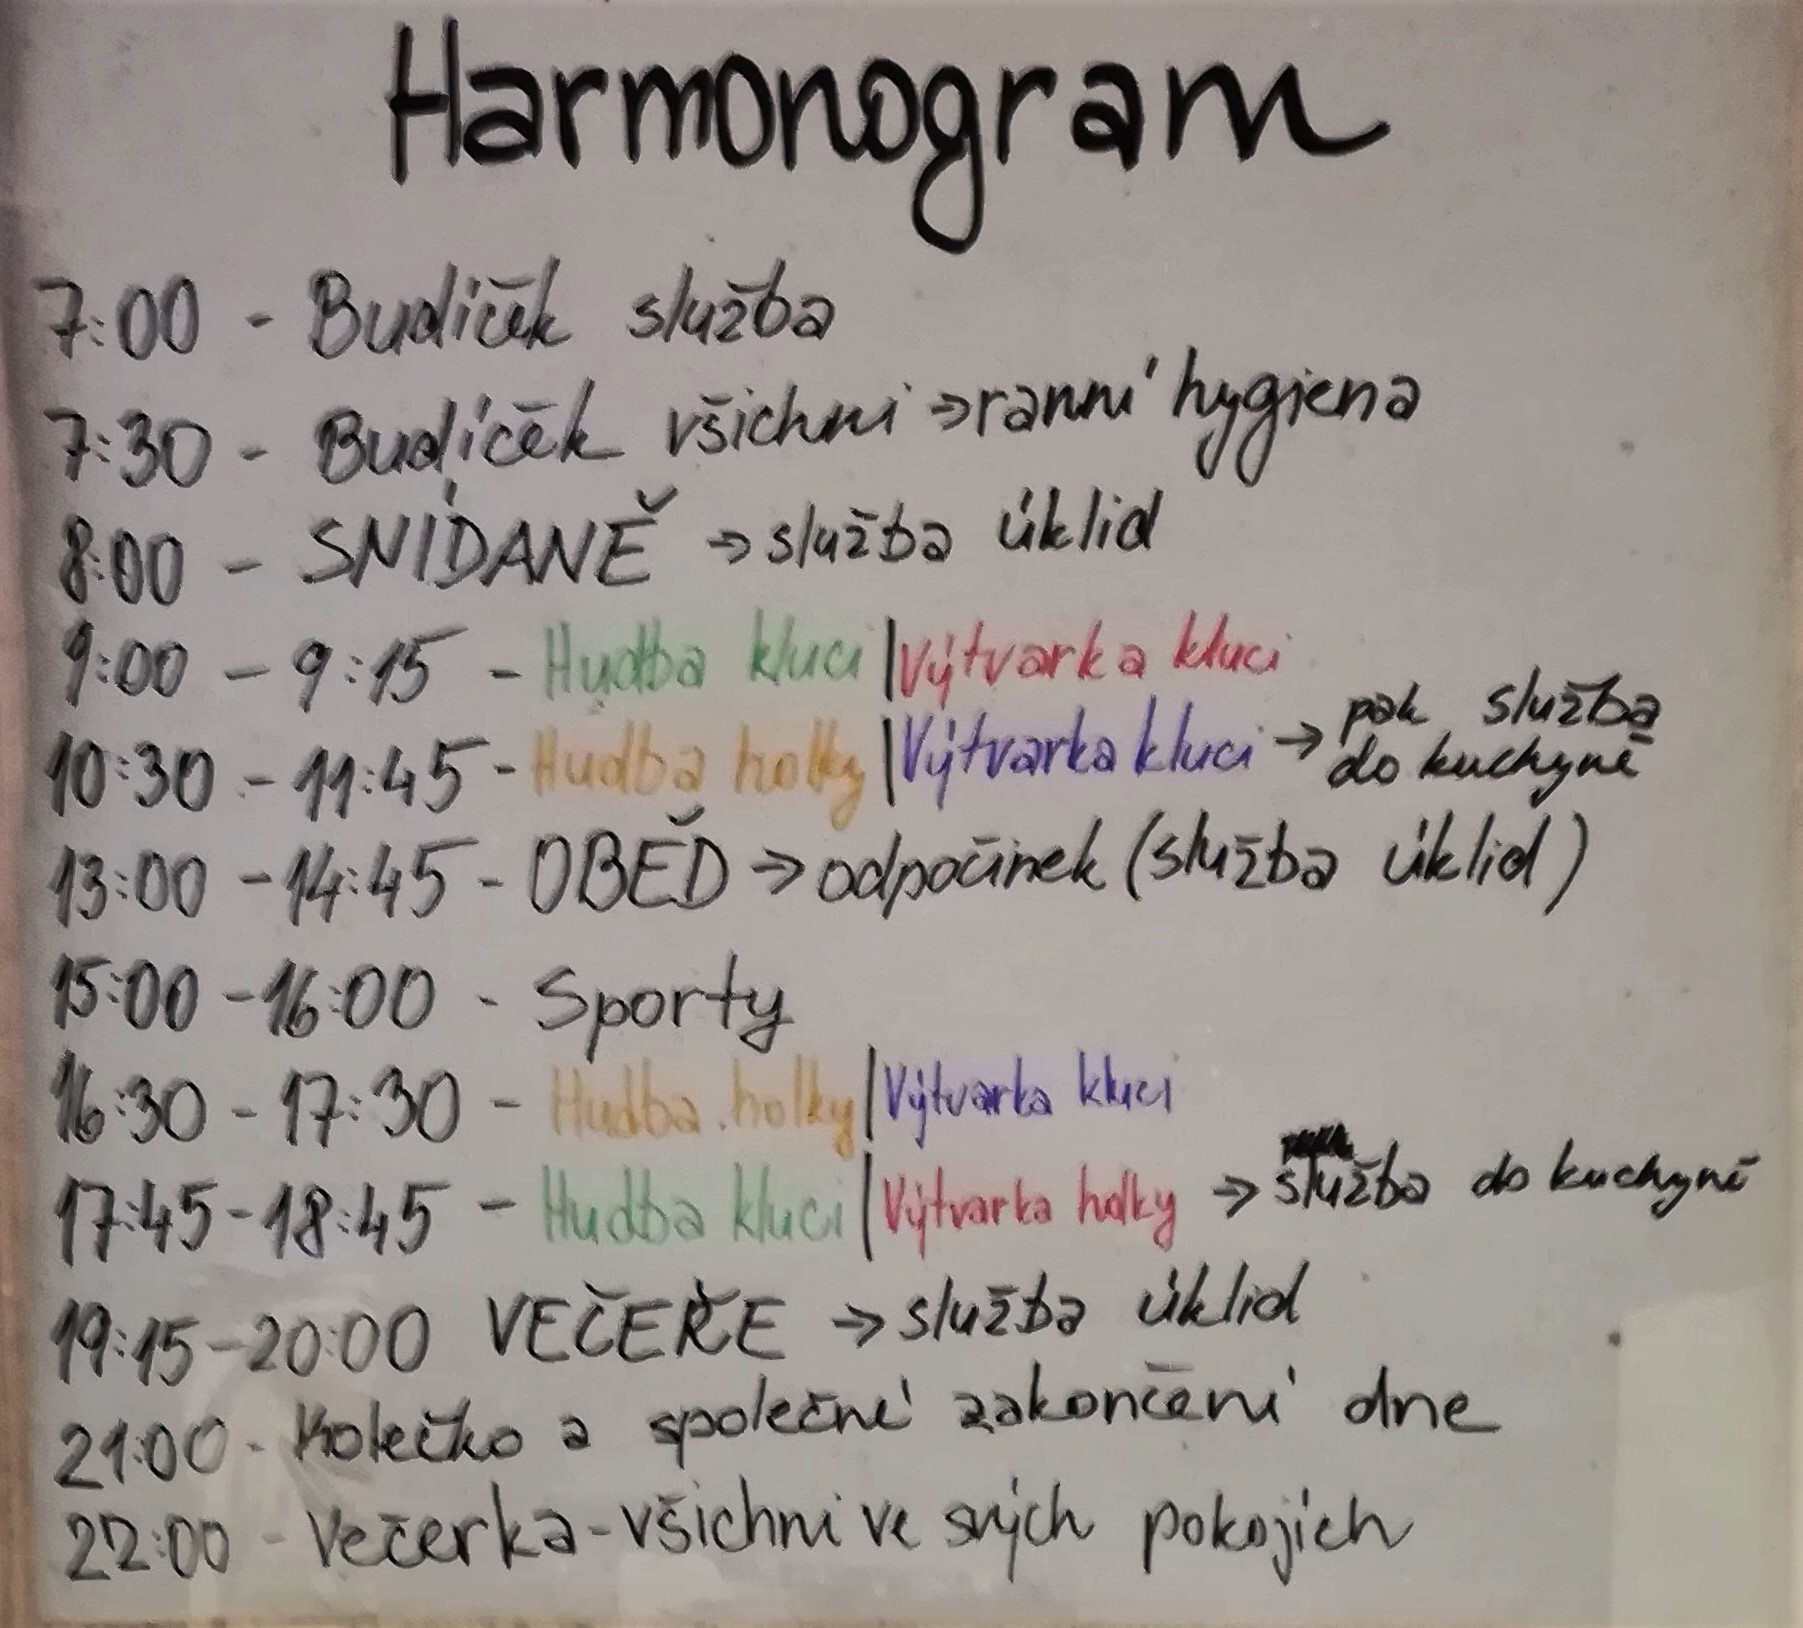 Harmonogram
7:00 - Budíček služba
7:30 - Budíček všichni → ranní hygiena
8:00 - SNÍDANĚ → služba úklid
9:00 - 9:15 - Hudba kluci | Výtvarka kluci
10:30 - 11:45 - Hudba holky | Výtvarka kluci → pak služba do kuchyně
13:00 - 14:45 - OBĚD → odpočinek (služba úklid)
15:00 - 16:00 - Sporty
16:30 - 17:30 - Hudba holky | Výtvarka kluci
17:45 - 18:45 - Hudba kluci | Výtvarka holky → služba do kuchyně
19:15 - 20:00 VEČEŘE → služba úklid
21:00 - Kolečko a společné zakončení dne
22:00 - Večerka - všichni ve svých pokojích